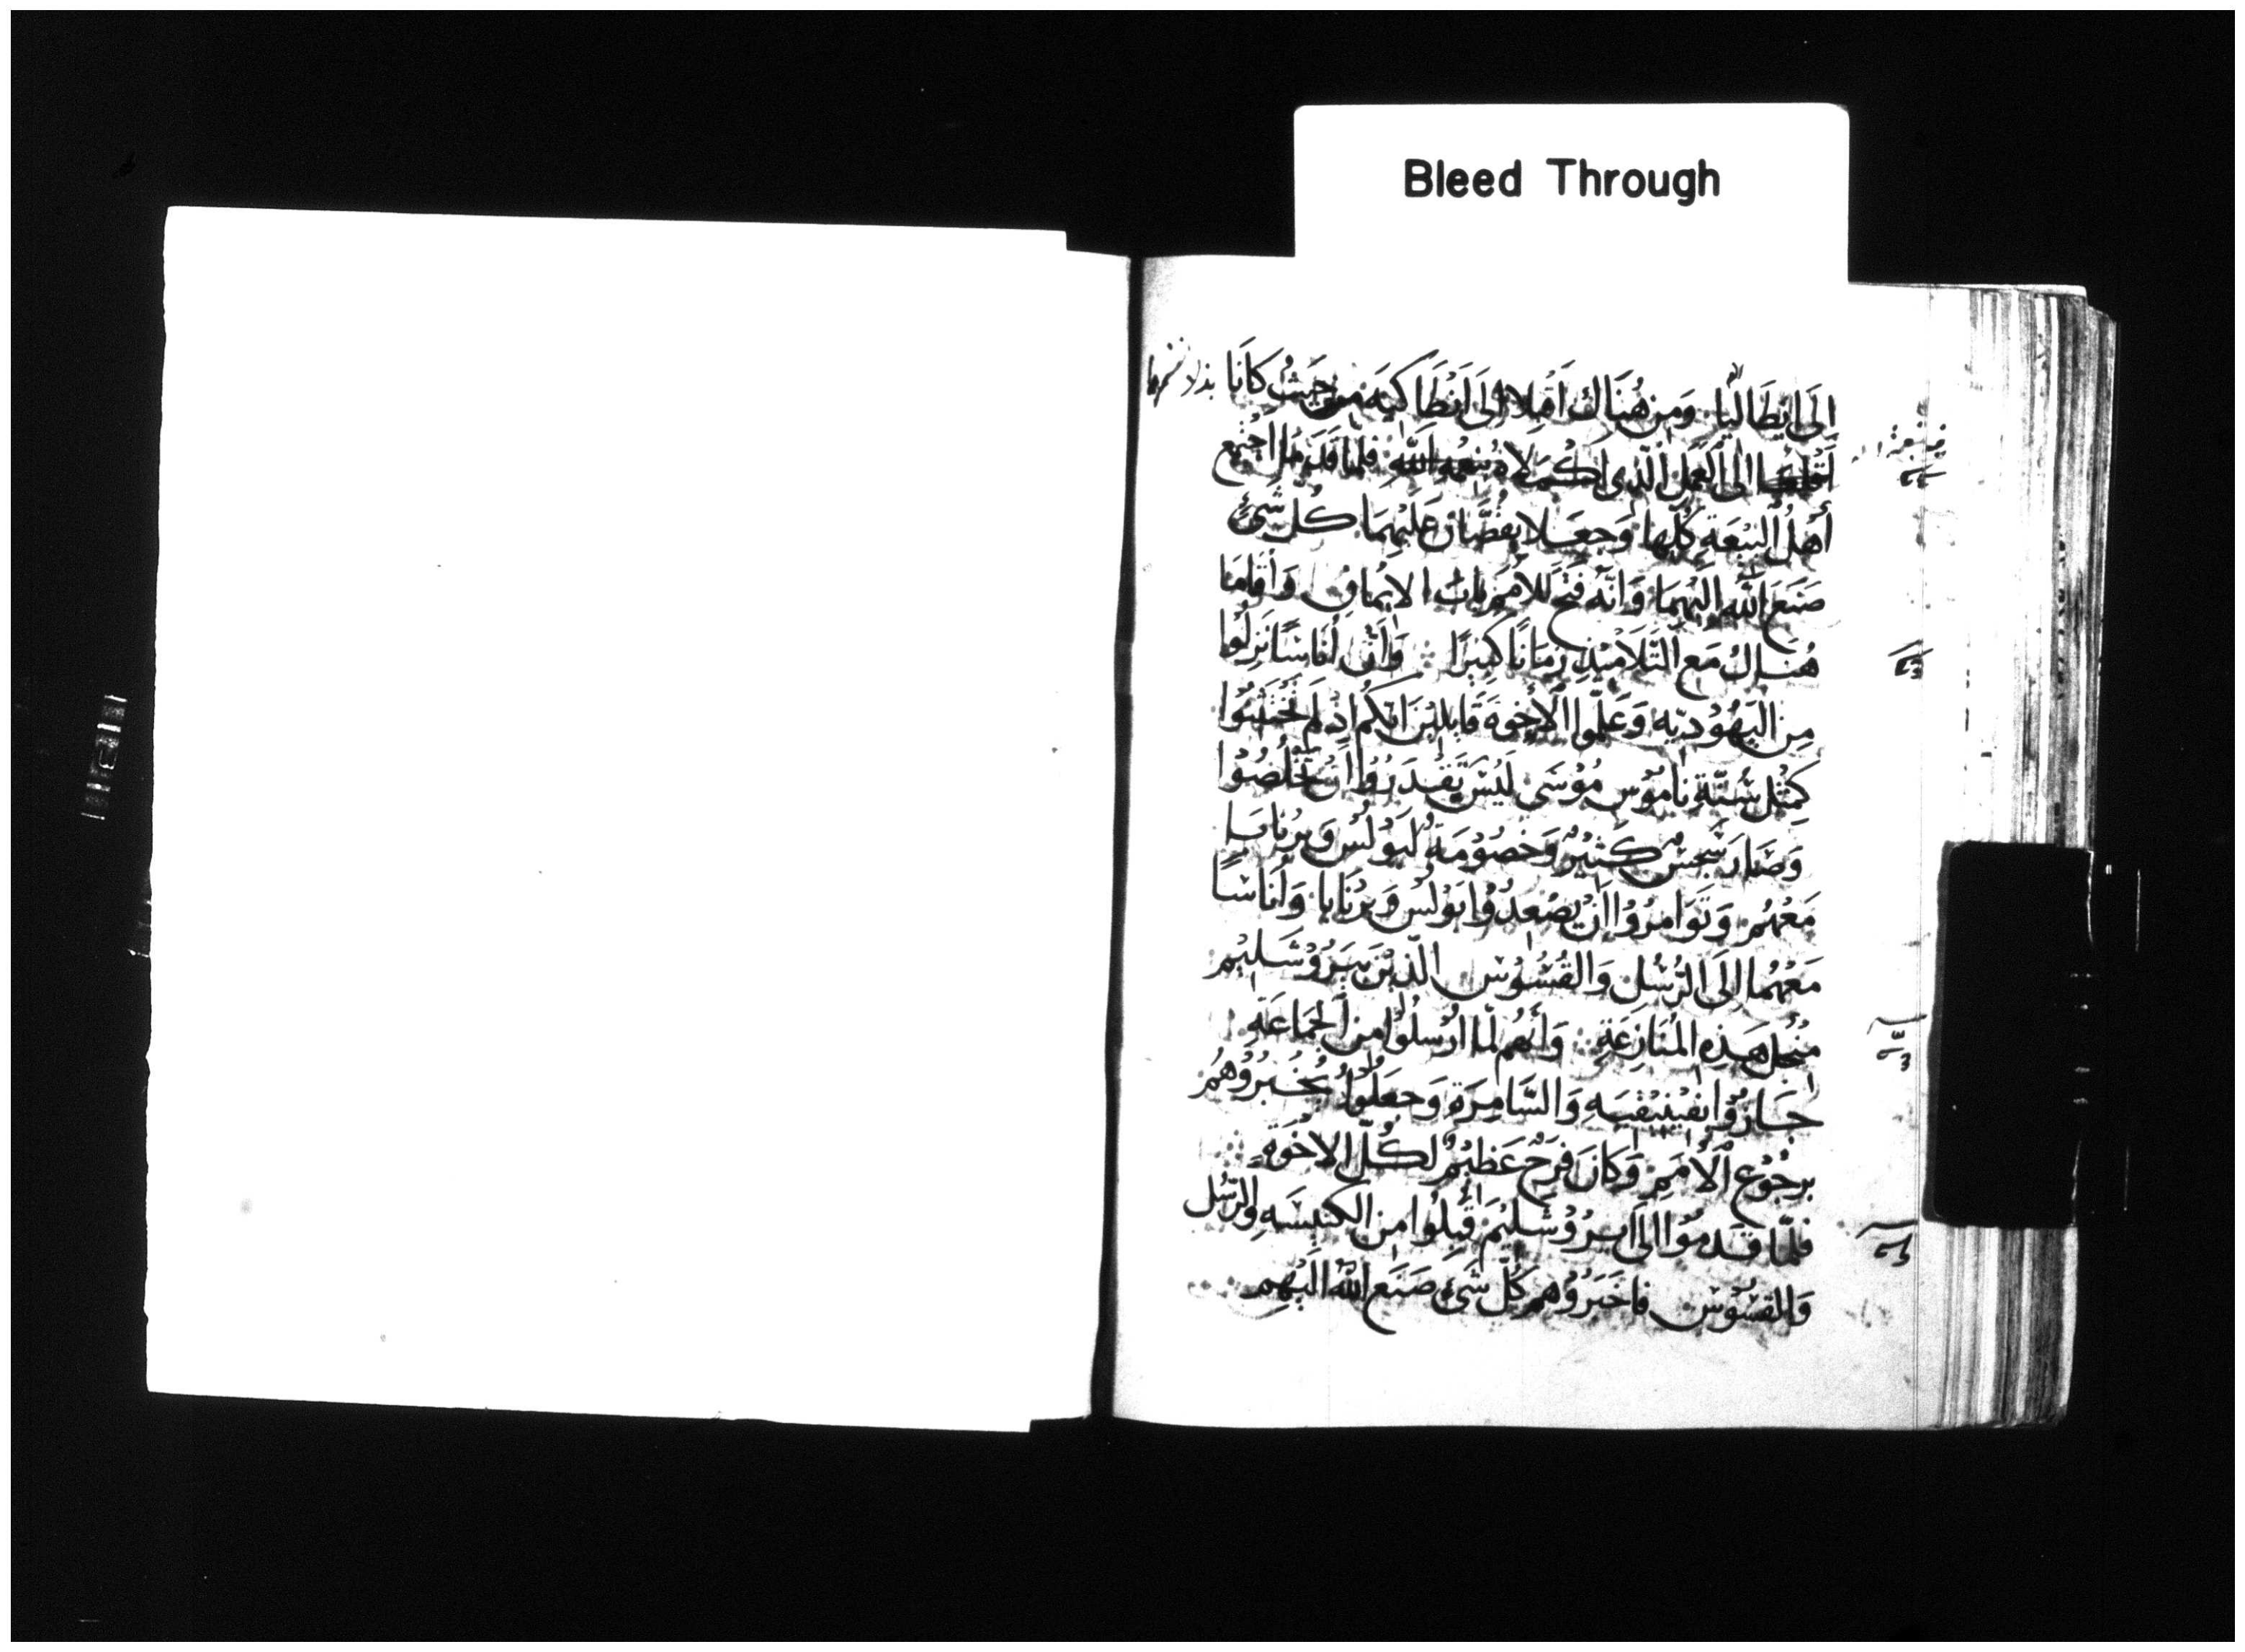 Bleed Through
اِلَى اِيْطَالْيَا وَمِنْ هُنَاكَ اَقْبَلا اِلَى اَنْطَاكِيَه مِنْ حَيْثُ كَانَا
الى العَمَلِ الَّذِى اكْمَلاهُ بنعمه الله فلما قدما اجْتَمع
أَهْلُ الْبِيْعَةِ كُلّها وَجَعَلا يقُصَّانِ عَلَيْهِمَا كُلّ شَىْء
صَنَعَ اللَّه الَيْهِمَا وَانَّه فَتَحَ لِلاُمَمِ بَابَ الايْمَانِ وَأقَامَا
هُنَاكَ مَعَ التَّلاَمِيْذِ زَمَانًا كَبِيْرًا وَأنَّ أنَاسًا نَزِلُوا
مِنَ الْيَهُوْدِيّه وَعَلَّمُوا الاِخْوَةَ قَايلِيْنَ انّكُم اِذْ لَم تَخْتَتِنُوا
كَمِثْل سُنَّةِ نَامُوْسِ مُوْسَى لَيْسَ تَقْدَرُوا انْ تخْلُصُوْا
وَصَارَ سَجْسٌ كَثِيْرٌ وَخصُوْمَةٌ لبَوْلُسْ وَبرْنَابَا
مَعْهُم وَتَوَامرُوْا انْ يَصْعدُوْا بَوْلُسْ وَبرْنَابَا وَأنَاسًا
مَعْهُمَا اِلَى الرُّسُلِ وَالقُسُوْسِ الّذيْنَ بيَرُوْشَلِيْم
مِنْ اجل هَذِهِ المُنَازعَةِ وَأنهُم لَمَّا ارْسلُوْا مِن الجَمَاعَةِ
جَازوْا بفيْنيْقيَه وَالسَّامِرَةِ وَجعَلُوْا يُخْبِرُوْهُم
برجُوْعِ الأُمَمِ وَكَانَ فَرَحٌ عَظِيْمٌ لكُلّ الاخْوَةِ
فلَمّا قَدمُوْا الى ايرُوْشَلِيْمَ قُبلُوا مِن الكَنِيْسَه وَالرُّسُل
وَالقسُوْس فَاخبَرُوْهُم كُلّ شَىْء صَنَعَ اللَّهُ الَيْهِم